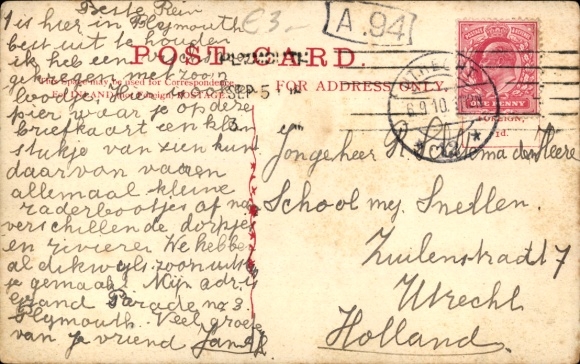 Beste Rein
't is hier in Plymouth
best uit te houden
ik heb een
gekregen met zoon
bootje. Hier is ook een
pier waar je op deze
briefkaart een klein
stukje van zien kunt
daarvan varen
allemaal kleine
raderbootjes af naar
verschillende dorpjes
en rivieren We hebben
al dikwijls zoon uitstapje
gemaakt Mijn adres
Grand Parade no 3
Plymouth. Veel groeten
van je vriend Jan
€3-
A.94
POST CARD.
This space may be used for Correspondence
FOR ADDRESS ONLY.
SEP 5
3
UTRECHT
6.9.10
ONE PENNY
FOREIGN,
1d.
Jongeheer R. den Heere
School mej. Snellen.
Zuilenstraat 7
Utrecht
Holland.